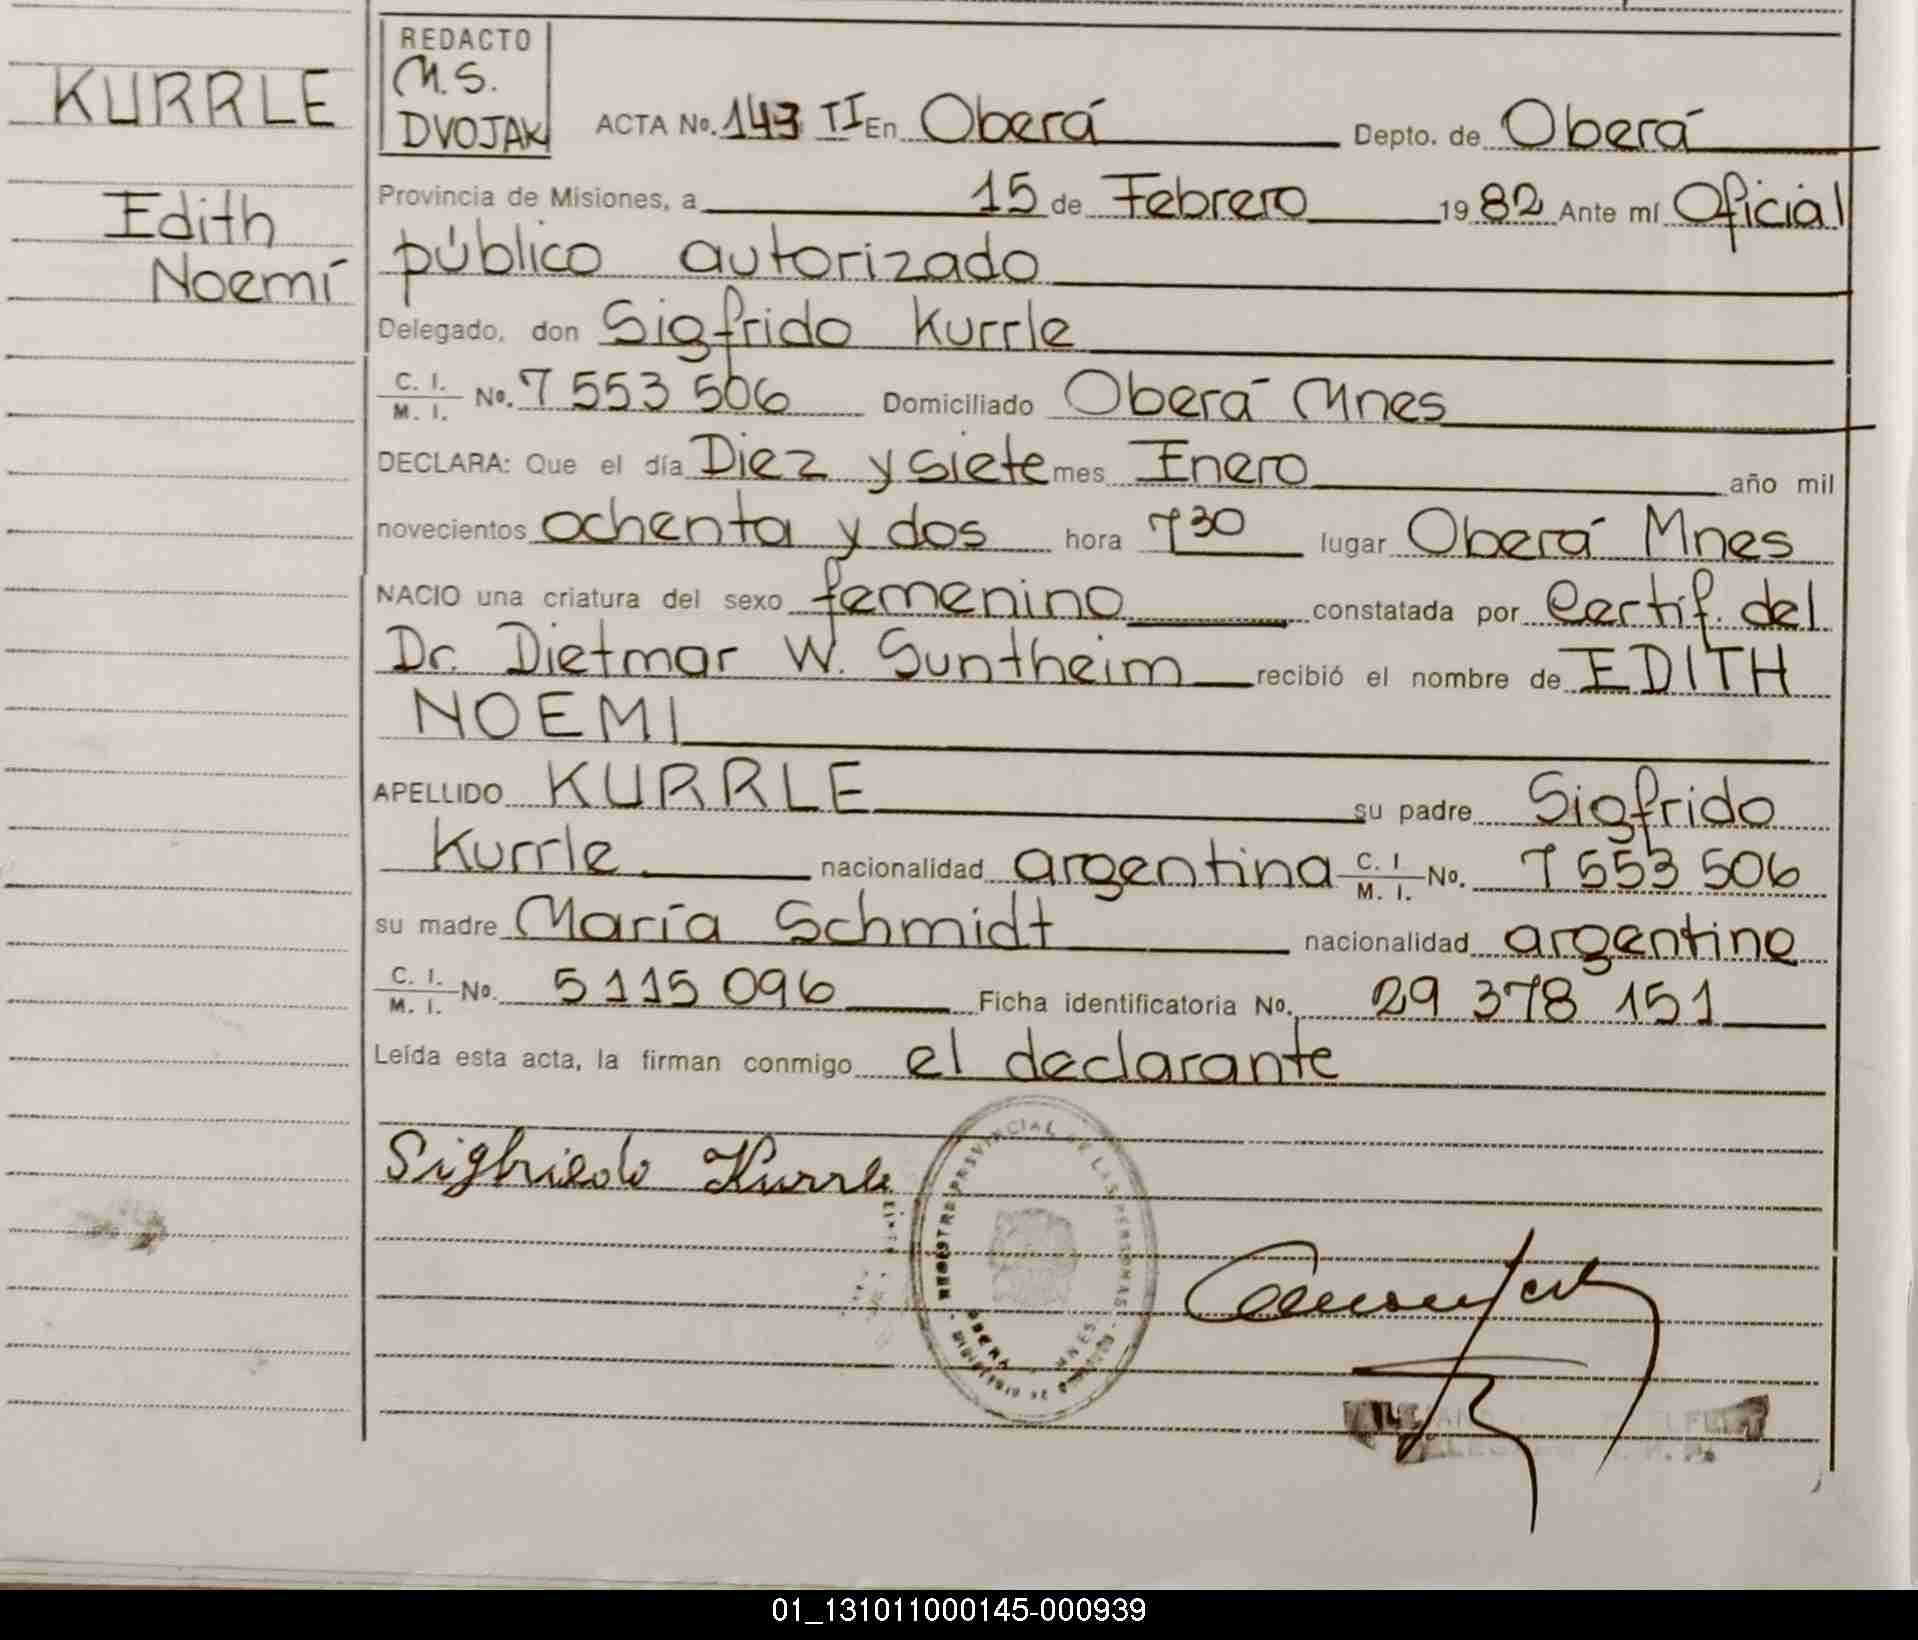 KURRLE
Edith
Noemí
REDACTO
M.S.
DVOJAK
ACTA No. 143 II En Oberá Depto. de Oberá
Provincia de Misiones, a 15 de Febrero 19 82 Ante mí Oficial
público autorizado
Delegado, don Sigfrido Kurrle
C. I. / M. I. No. 7 553 506 Domiciliado Oberá Mnes
DECLARA: Que el día Diez y siete mes Enero año mil
novecientos ochenta y dos hora 7 30 lugar Oberá Mnes
NACIO una criatura del sexo femenino constatada por Certif. del
Dr. Dietmar W. Suntheim recibió el nombre de EDITH
NOEMI
APELLIDO KURRLE su padre Sigfrido
Kurrle nacionalidad argentina C. I / M. I. No. 7 553 506
su madre María Schmidt nacionalidad argentina
C. I. / M. I. No. 5 115 096 Ficha identificatoria No. 29 378 151
Leída esta acta, la firman conmigo el declarante
Sigfriedo Kurrle
REGISTRO PROVINCIAL DE LAS PERSONAS
OBERA MNES
01_131011000145-000939